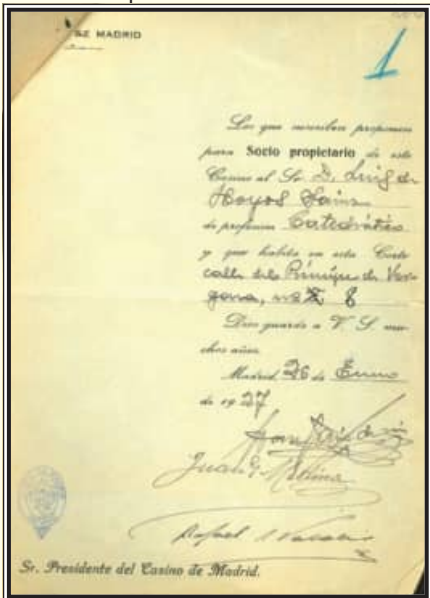 DE MADRID
1
Los que suscriben proponen
para Socio propietario de este
Casino al Sr. D. Luis de
Hoyos Sainz
de profesión Catedrático
y que habita en esta Corte
calle del Príncipe de Ver-
gara, nº 8
Dios guarde a V. S. mu-
chos años.
Madrid 26 de Enero
de 1927
Juan G. Molina
Rafael
Sr. Presidente del Casino de Madrid.